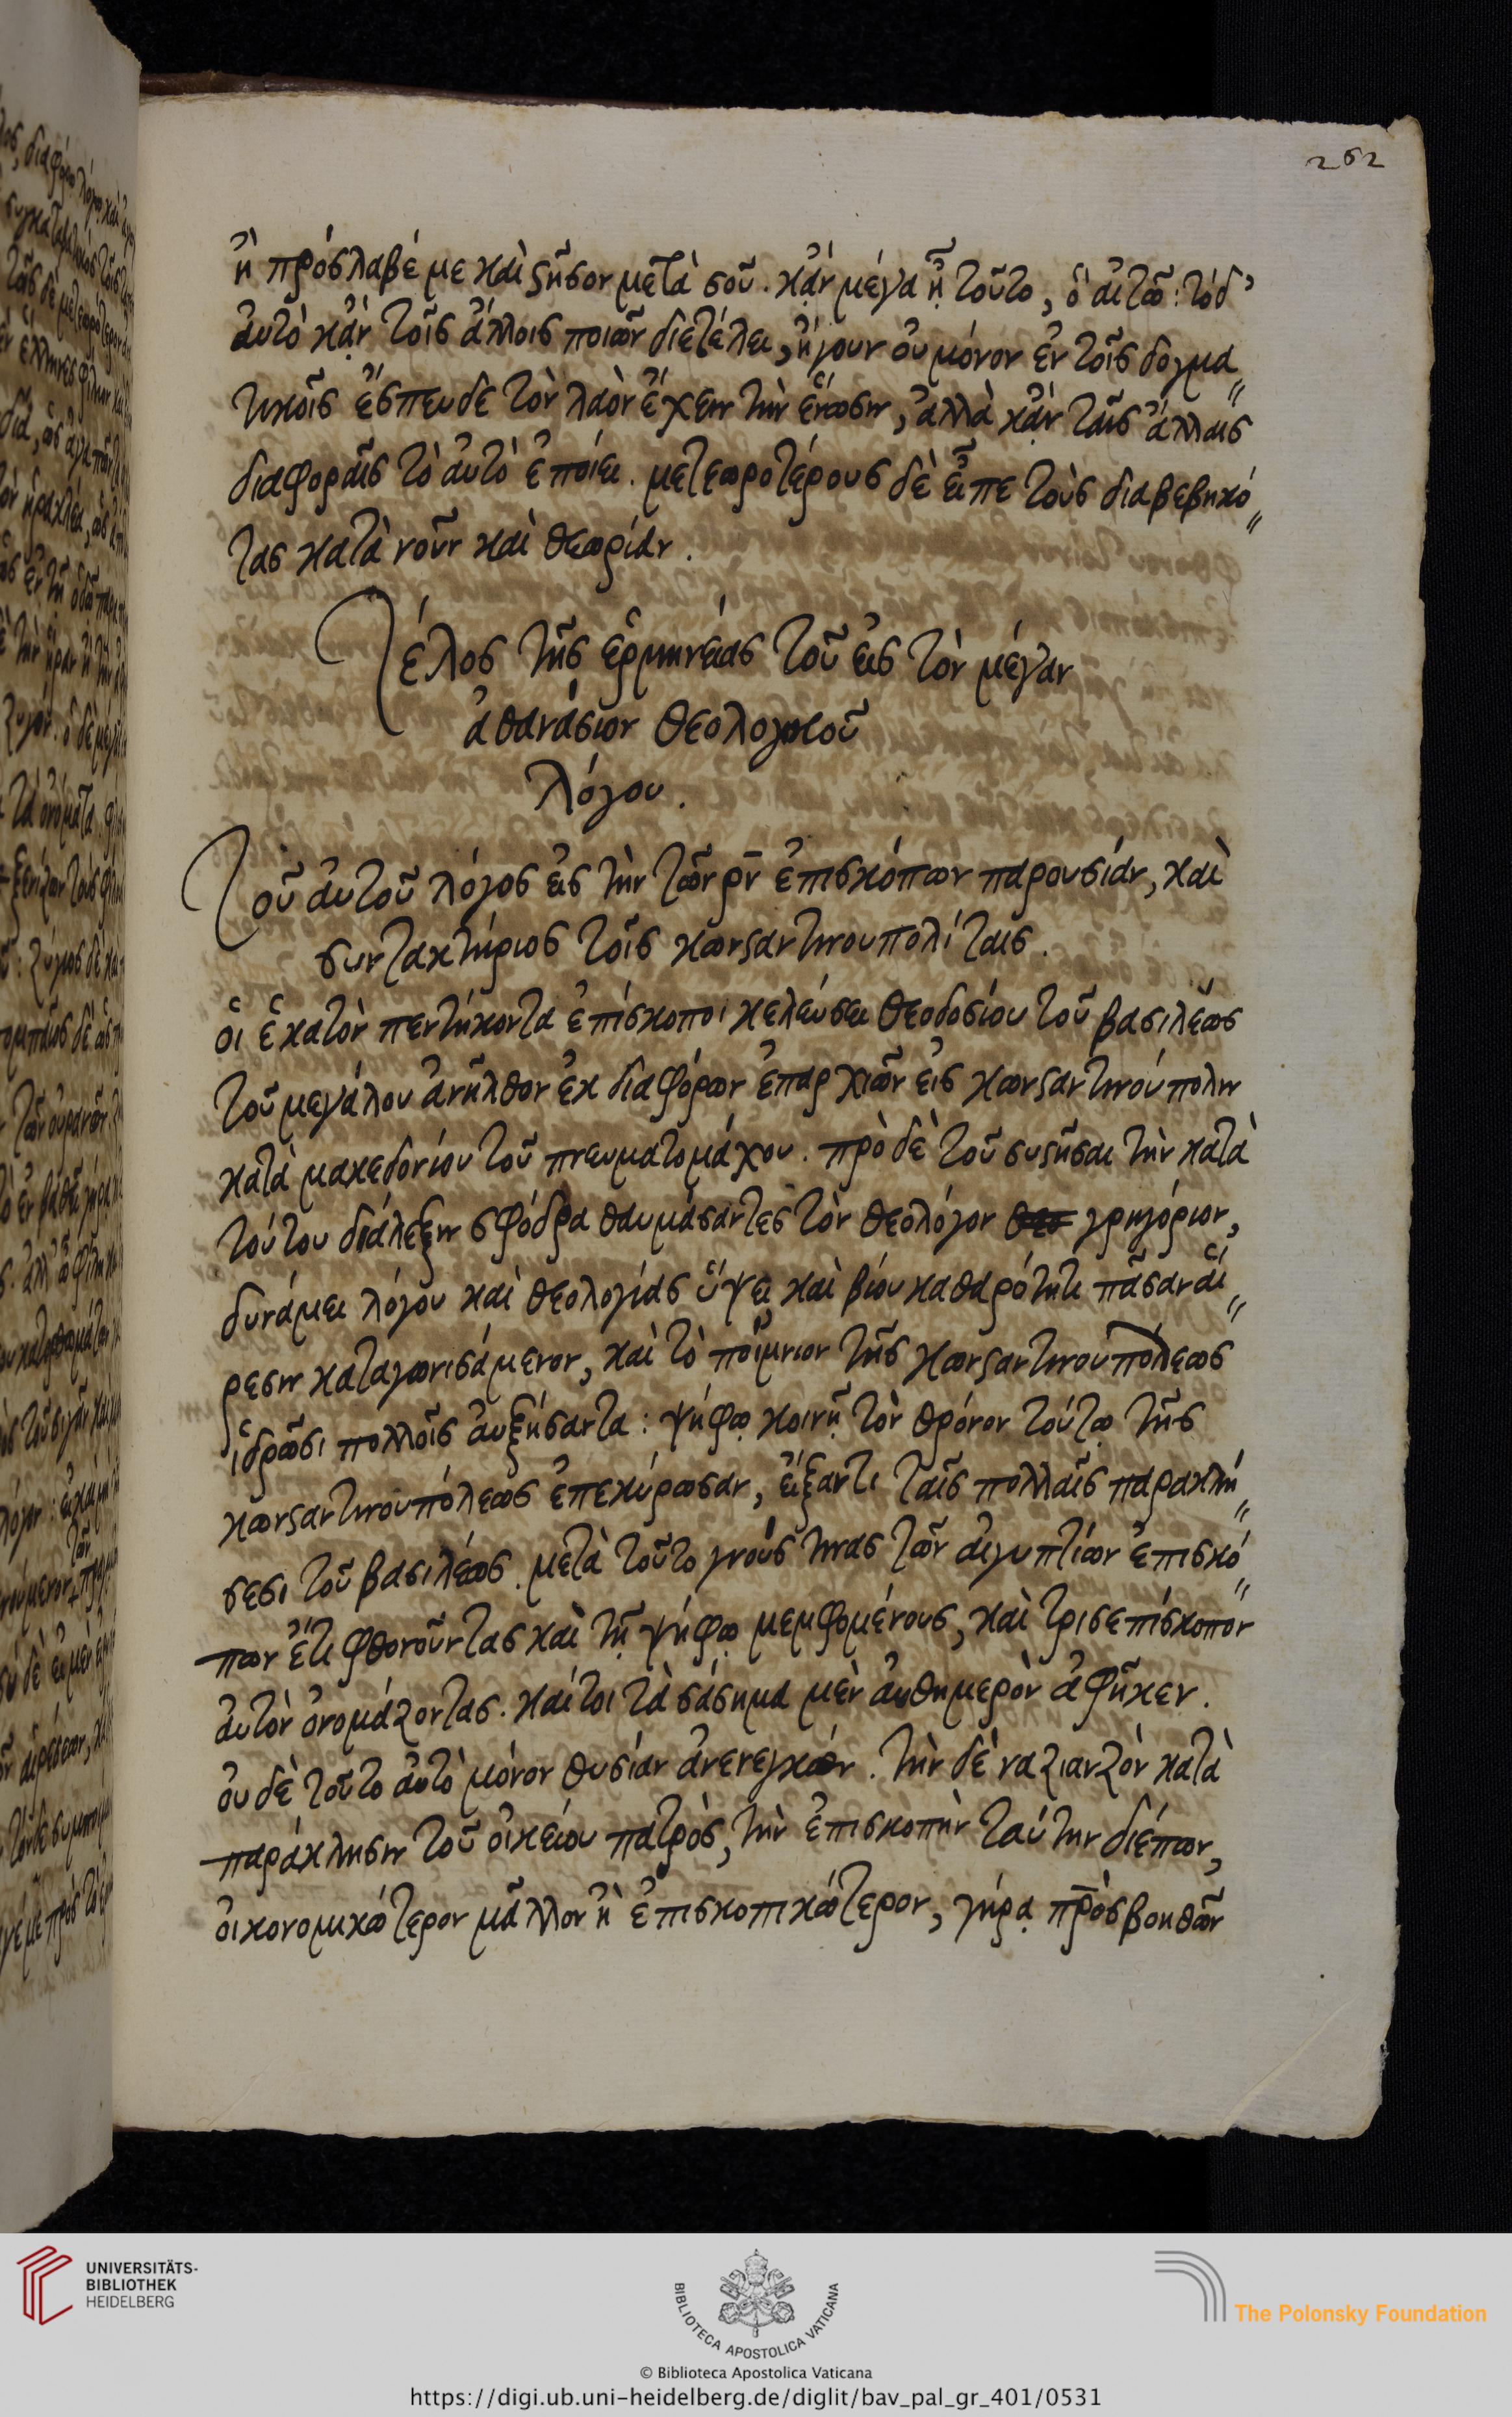 262
ἢ πρόσλαβέ με καὶ στῆσον μετὰ σοῦ. κᾂν μέγα ᾖ τοῦτο, ὃ αἰτῶ: τὸ δ'
αὐτὸ κᾂν τοῖς ἄλλοις ποιῶν διετέλει, ἤγουν οὐ μόνον ἐν τοῖς δογμα
τικοῖς ἔσπευδε τὸν λαὸν ἔχειν τὴν ἕνωσιν, ἀλλὰ κᾂν ταῖς ἄλλαις
διαφοραῖς τὸ αὐτὸ ἐποίει. μετεωροτέρους δὲ εἶπε τοὺς διαβεβηκό
τας κατὰ νοῦν καὶ θεωρίαν.
Τέλος τῆς ἑρμηνείας τοῦ εἰς τὸν μέγαν
ἀθανάσιον θεολογικοῦ
λόγου.
Τοῦ αὐτοῦ λόγος εἰς τὴν τῶν ρν̄ ἐπισκόπων παρουσίαν, καὶ
συντακτήριος τοῖς κωνσταντινουπολίταις.
οἱ ἑκατὸν πεντήκοντα ἐπίσκοποι κελεύσει θεοδοσίου τοῦ βασιλέως
τοῦ μεγάλου ἀνῆλθον ἐκ διαφόρων ἐπαρχιῶν εἰς κωνσταντινούπολιν
κατὰ μακεδονίου τοῦ πνευματομάχου. πρὸ δὲ τοῦ συστῆσαι τὴν κατὰ
τούτου διάλεξιν σφόδρα θαυμάσαντες τὸν θεολόγον θεο γρηγόριον,
δυνάμει λόγου καὶ θεολογίας ὕψει, καὶ βίου καθαρότητι πᾶσαν αἵ
ρεσιν καταγωνισάμενον, καὶ τὸ ποίμνιον τῆς κωνσταντινουπόλεως
ἱδρῶσι πολλοῖς αὐξήσαντα: ψήφῳ κοινῇ τὸν θρόνον τούτῳ τῆς
κωνσταντινουπόλεως ἐπεκύρωσαν, εἴξαντι ταῖς πολλαῖς παρακλή
σεσι τοῦ βασιλέως. μετὰ τοῦτο γνοὺς τινας τῶν αἰγυπτίων ἐπισκό
πων ἔτι φθονοῦντας καὶ τῇ ψήφῳ μεμφομένους, καὶ τρισεπίσκοπον
αὐτὸν ὀνομάζοντας. καίτοι τὰ σάσημα μὲν αὐθημερὸν ἀφῆκεν.
οὐδὲ τοῦτο αὐτὸ μόνον θυσίαν ἀνενεγκών. τὴν δὲ ναζιανζὸν κατὰ
παράκλησιν τοῦ οἰκείου πατρὸς, τὴν ἐπισκοπὴν ταύτην διέπων,
οἰκονομικώτερον μᾶλλον ἢ ἐπισκοπικώτερον, γήρᾳ πρ̄ὸς βοηθῶν
UNIVERSITÄTS-
BIBLIOTHEK
HEIDELBERG
BIBLIOTECA APOSTOLICA VATICANA
The Polonsky Foundation
© Biblioteca Apostolica Vaticana
https://digi.ub.uni-heidelberg.de/diglit/bav_pal_gr_401/0531